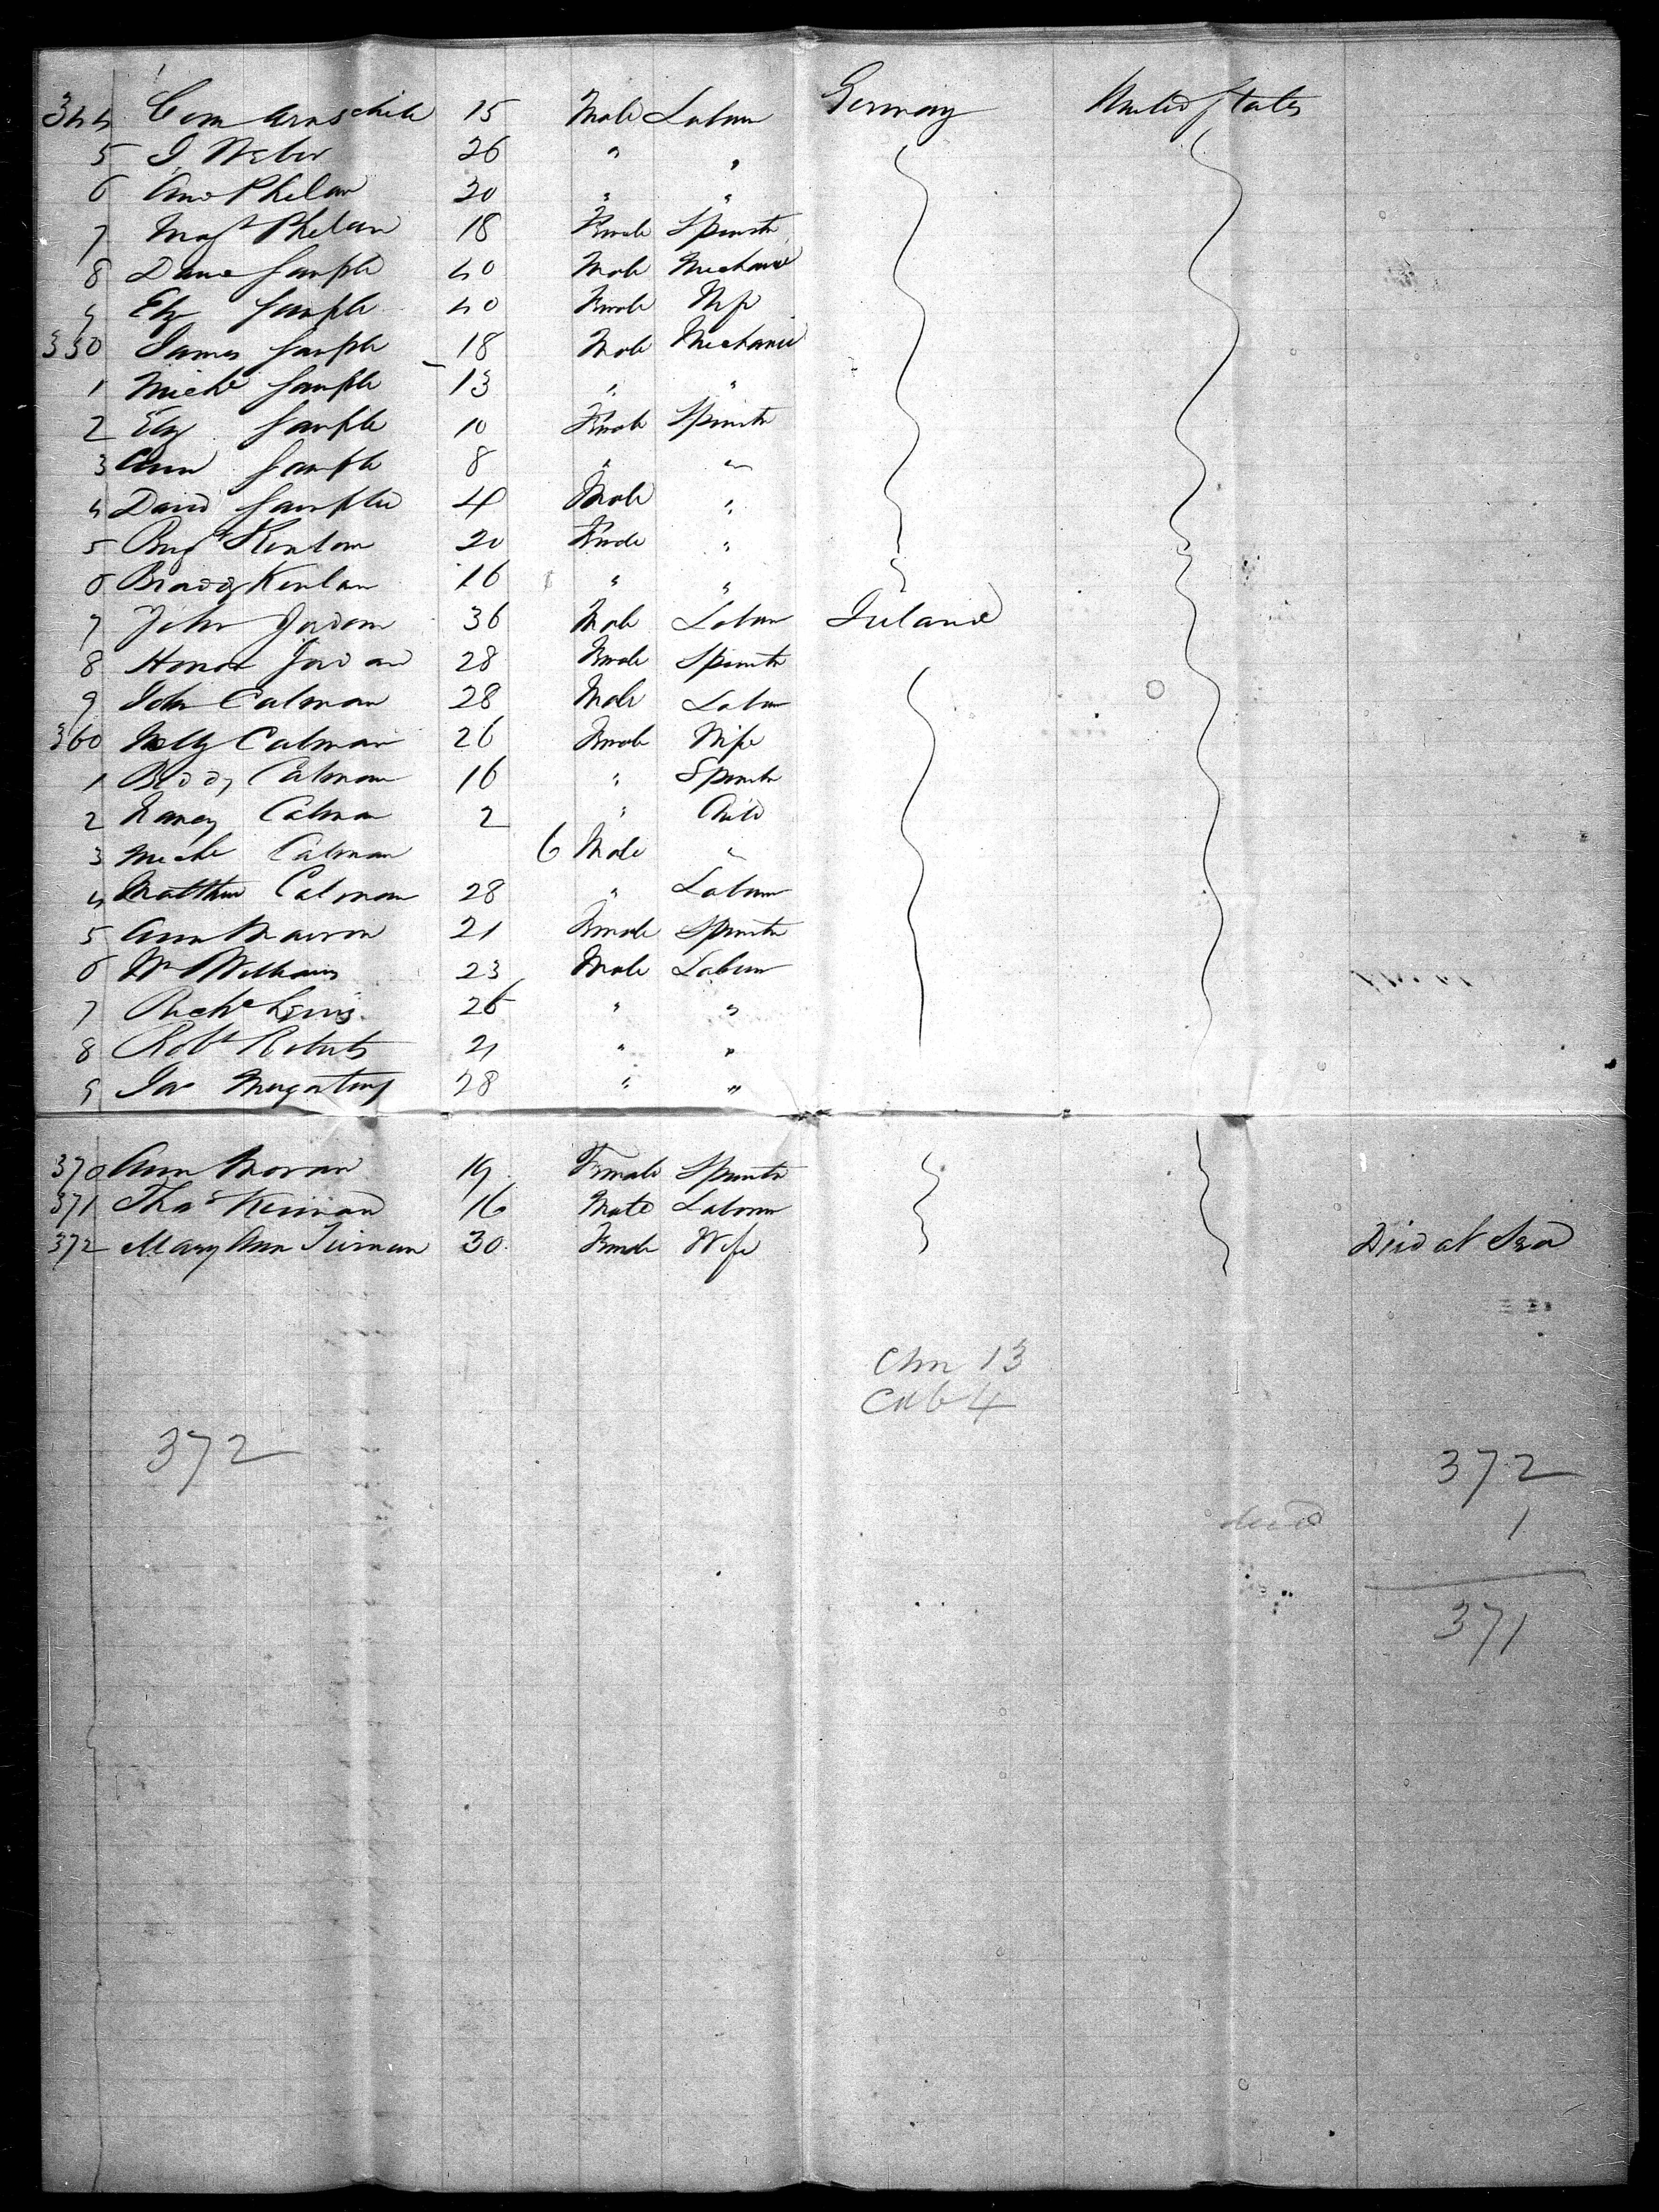 344 Com Arnschile 15 Male Labour Germany United States
5 J Weber 26 " "
6 And Phelan 30 " "
7 Magt Phelan 18 Female Spinster
8 Sample 40 Male Mechanic
9 Elz Sample 40 Female Wife
350 James Sample 18 Male Mechanic
1 Michl Sample 13 " "
2 Elz Sample 10 Female Spinster
3 Ann Sample 8 " "
4 David Sample 4 Male "
5 Kenlan 20 Female "
6 Kenlan 16 " "
7 John Jordan 36 Male Labour Ireland
8 Honor Jordan 28 Female Spinster
9 John Calman 28 Male Labour
360 Nelly Calman 26 Female Wife
1 Biddy Calman 16 " Spinster
2 Nancy Calman 2 " Child
3 Michl Calman 6 Male "
4 Matthew Calman 28 " Labour
5 Ann 21 Female Spinster
6 Wm Williams 23 Male Labour
7 Richd Lewis 26 " "
8 Robt Roberts 21 " "
9 Jas 28 " "
370 Ann Moran 19 Female Spinster
371 Thos Kiernan 16 Male Labour
372 Mary Ann Tiernan 30 Female Wife Died at Sea
Chn 13
Cab 4
372 372
died 1
371